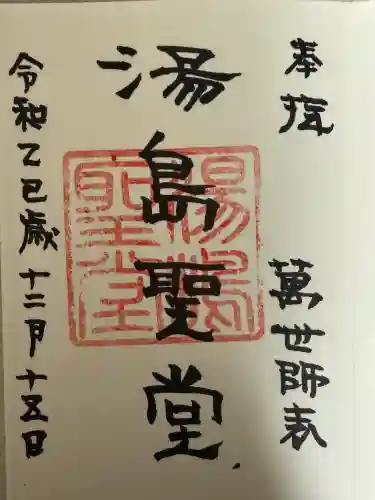 奉拝 萬世師表
湯島聖堂
令和乙巳歳十二月十五日
湯島聖堂